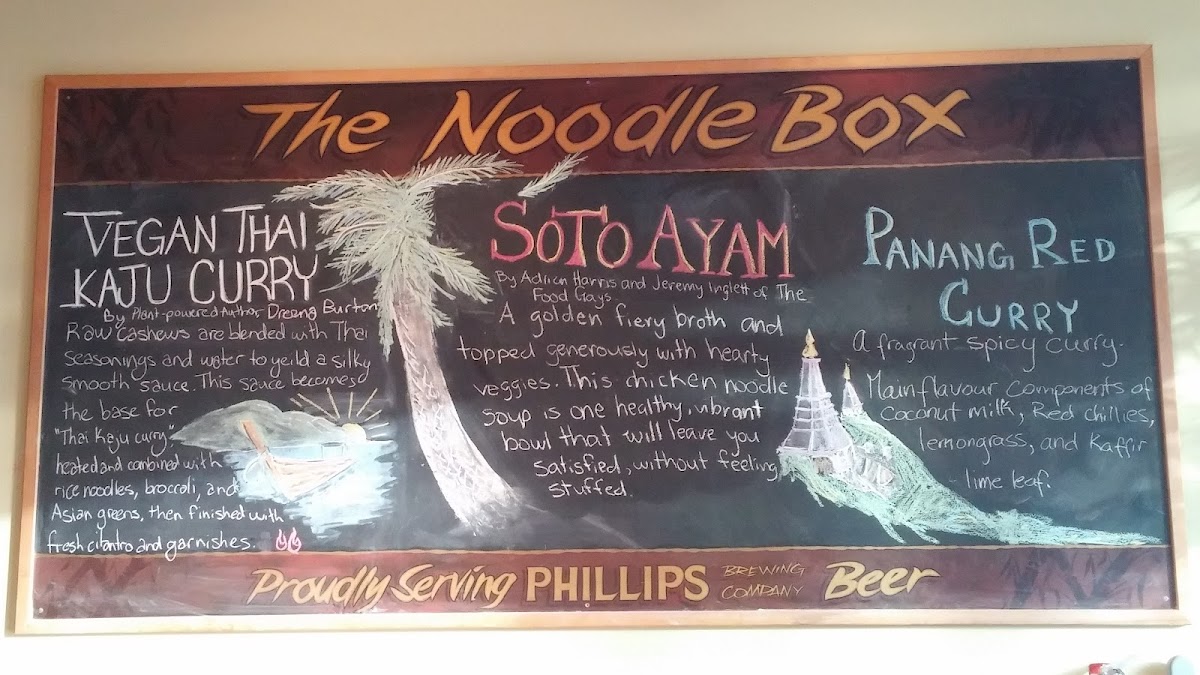 The Noodle Box
VEGAN THAI
KAJU CURRY
By Plant-powered Author Dreena Burton
Raw cashews are blended with Thai
seasonings and water to yeild a silky
smooth sauce. This sauce becomes
the base for
"Thai Kaju curry"
heated and combined with
rice noodles, broccoli, and
Asian greens, then finished with
fresh cilantro and garnishes.
SOTO AYAM
By Adrian Harris and Jeremy Inglett of The
Food Gays
A golden fiery broth and
topped generously with hearty
veggies. This chicken noodle
soup is one healthy, vibrant
bowl that will leave you
satisfied, without feeling
stuffed.
PANANG RED
CURRY
A fragrant spicy curry.
Main flavour components of
coconut milk, Red chillies,
lemongrass, and Kaffir
lime leaf.
Proudly Serving PHILLIPS BREWING COMPANY Beer